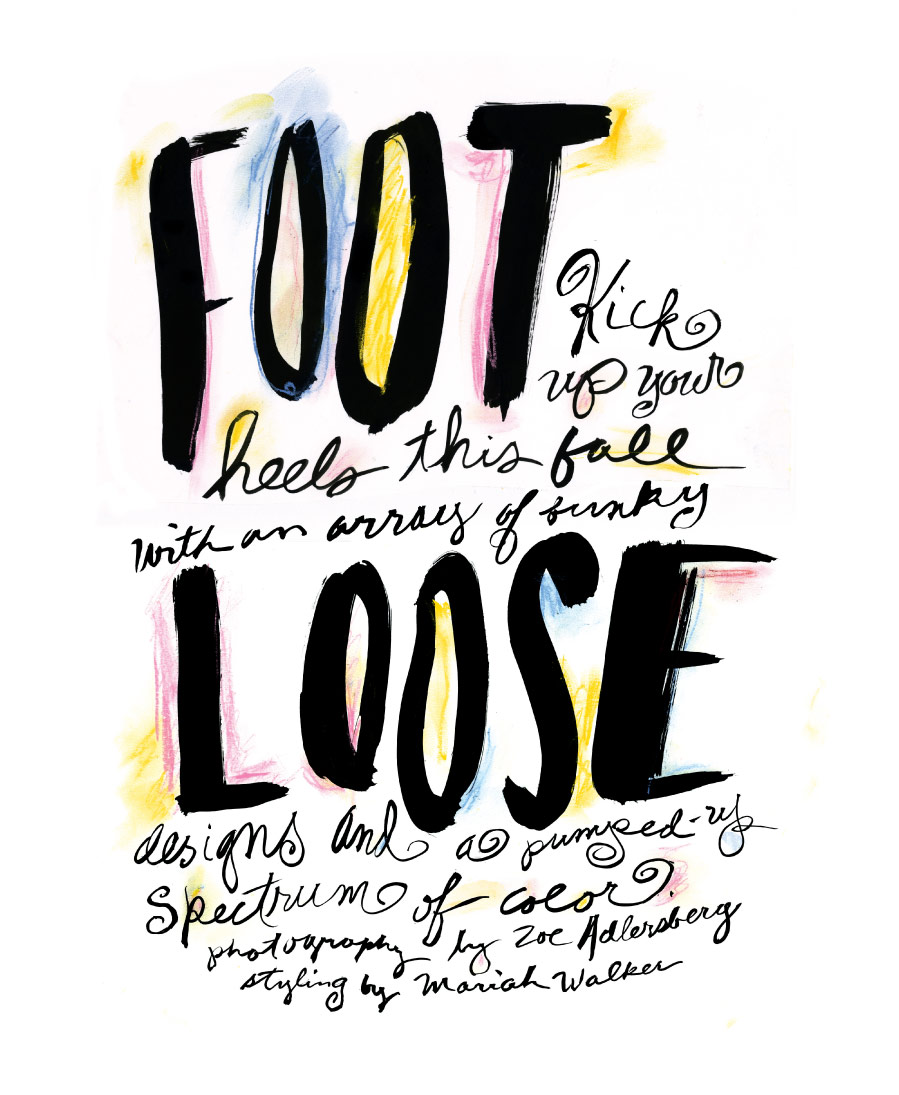 FOOT
Kick
up your
heels this fall
with an array of funky
LOOSE
designs and a pumped-up
Spectrum of color.
photography by Zoe Adlersberg
styling by Mariah Walker